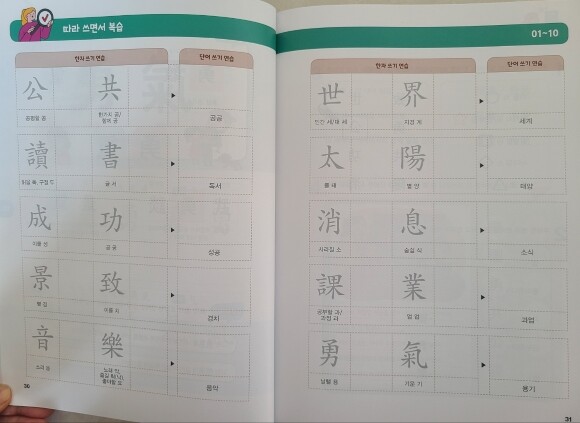 따라 쓰면서 복습
한자 쓰기 연습
단어 쓰기 연습
公 共
공평할 공
한가지 공/
함께 공
공공
讀 書
읽을 독, 구절 두
글 서
독서
成 功
이룰 성
공 공
성공
景 致
볕 경
이를 치
경치
音 樂
소리 음
노래 악,
즐길 락(낙),
좋아할 요
음악
36
01-10
한자 쓰기 연습
단어 쓰기 연습
世 界
인간 세/대 세
지경 계
세계
太 陽
클 태
볕 양
태양
消 息
사라질 소
숨쉴 식
소식
課 業
공부할 과/
과정 과
업 업
과업
勇 氣
날랠 용
기운 기
용기